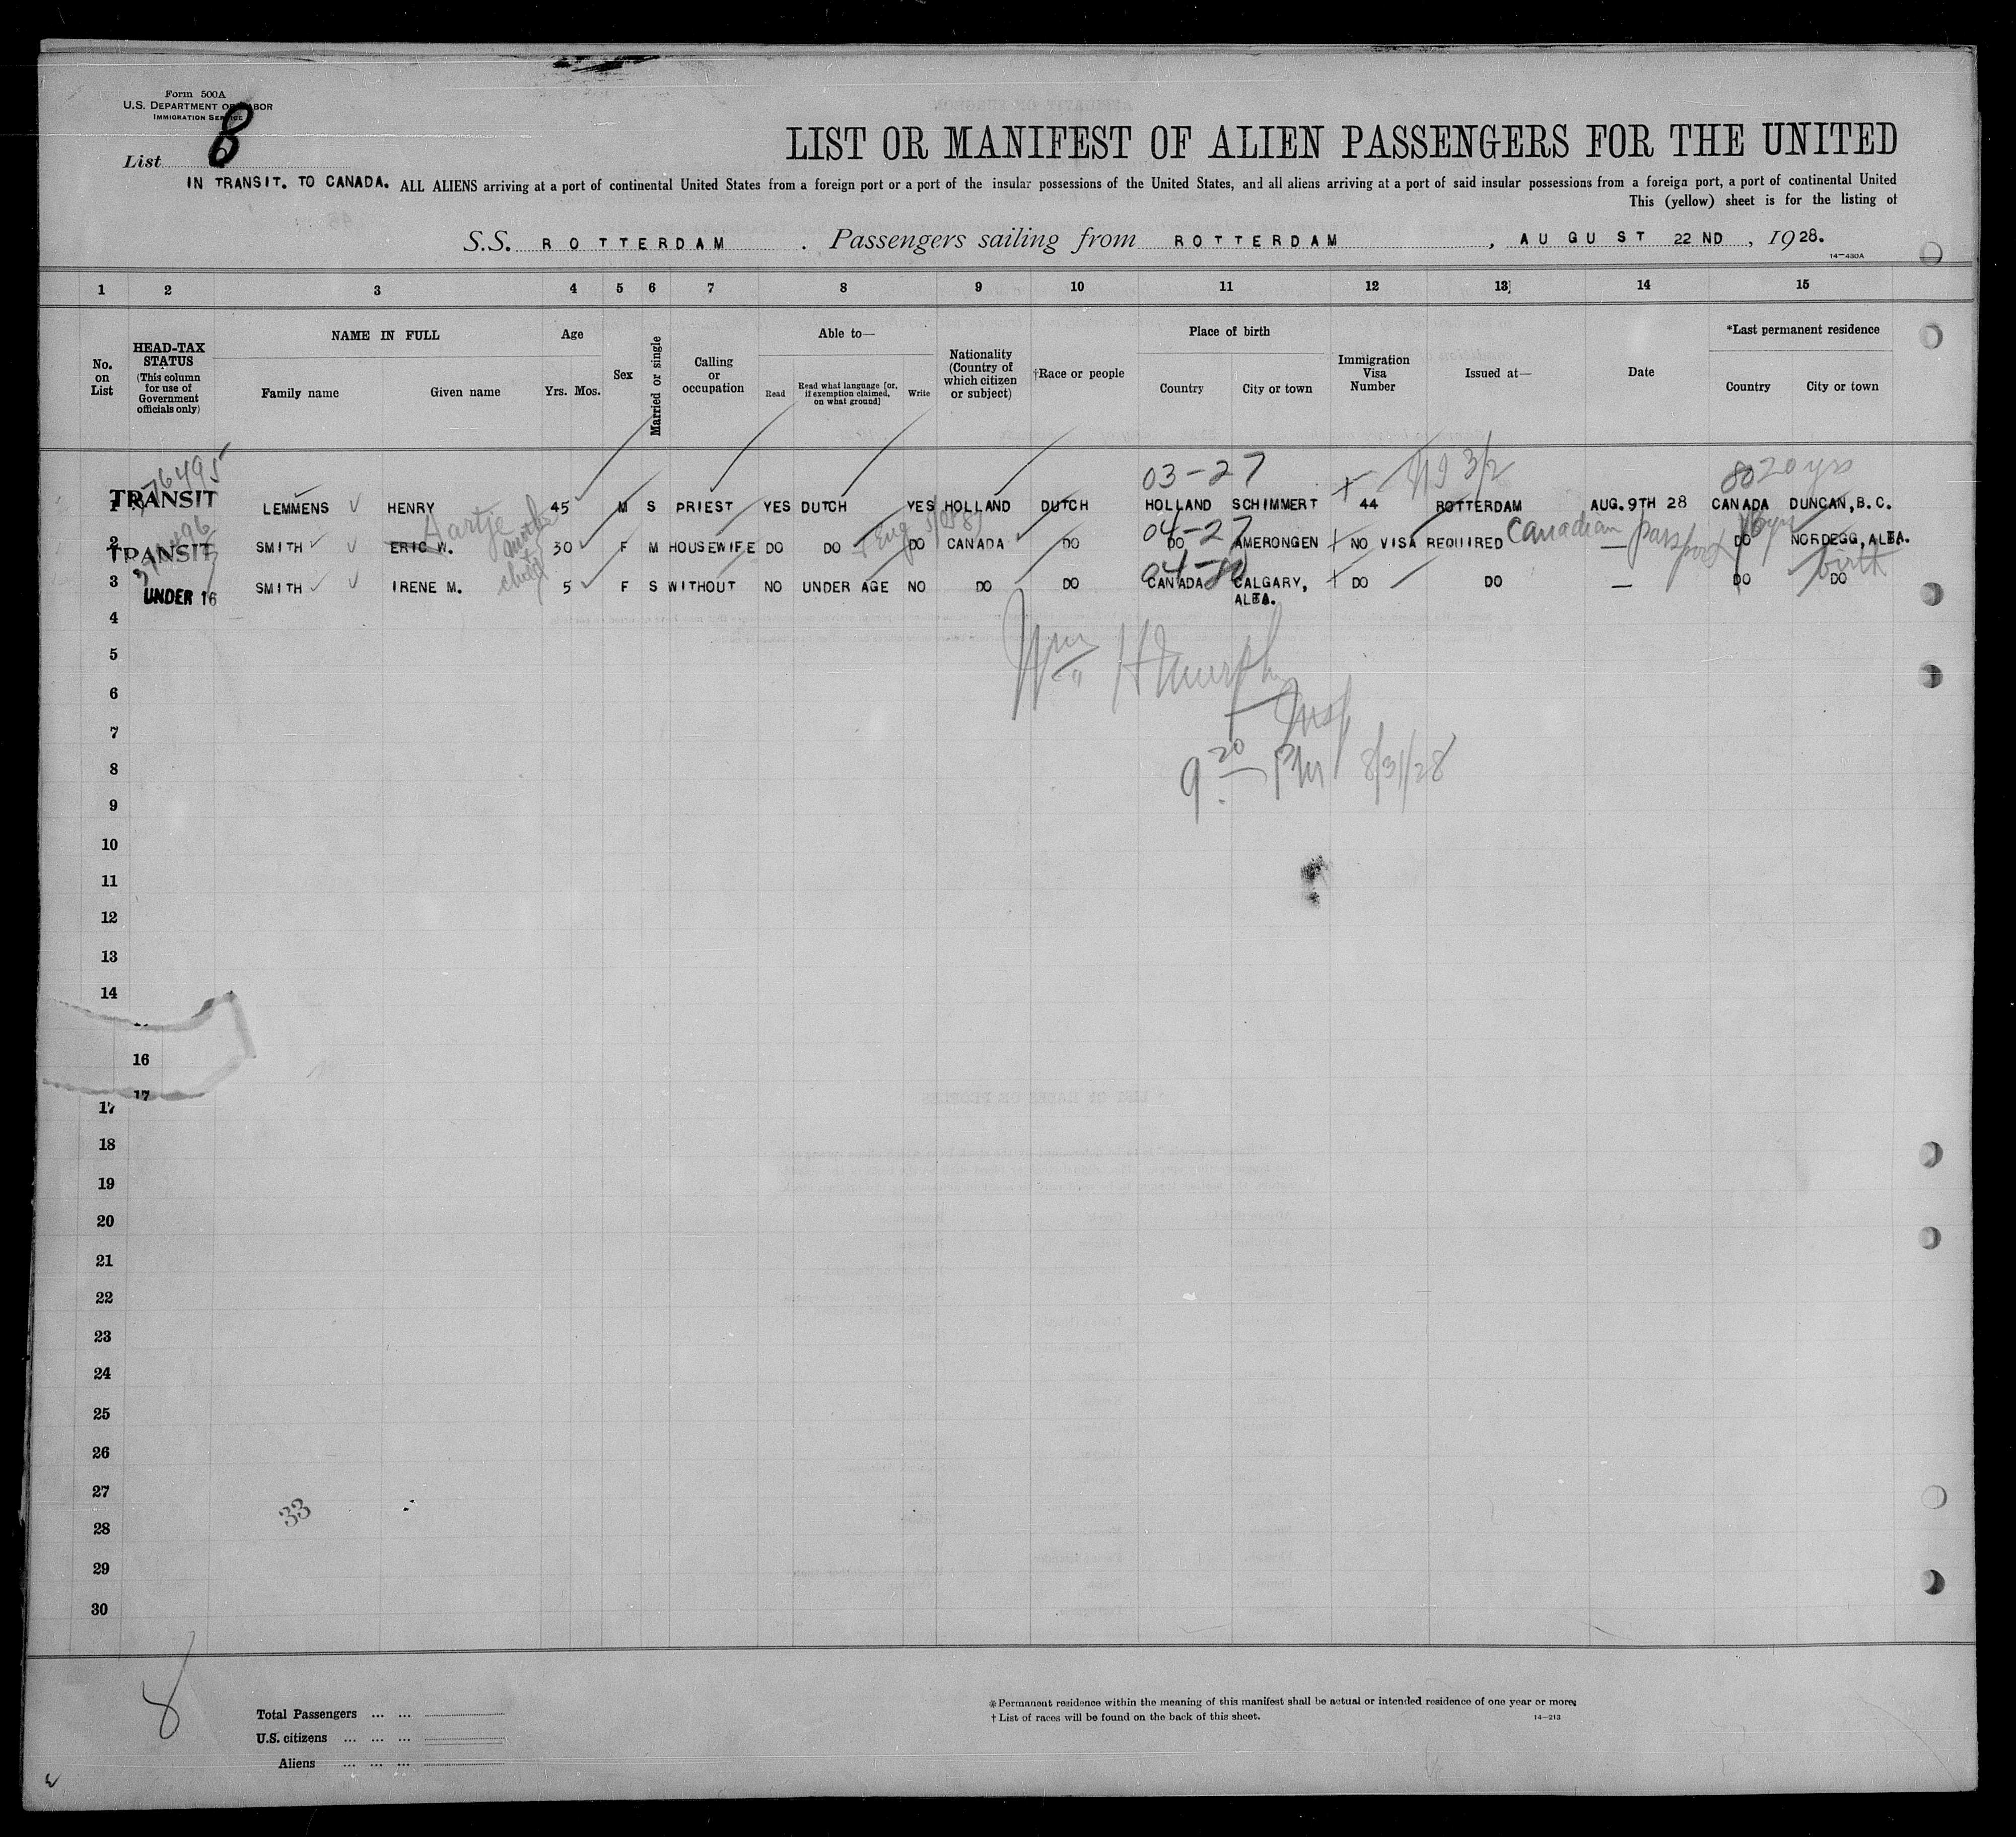 Form 500A
U.S. DEPARTMENT OF LABOR
IMMIGRATION SERVICE
List 8
LIST OR MANIFEST OF ALIEN PASSENGERS FOR THE UNITED
IN TRANSIT. TO CANADA. ALL ALIENS arriving at a port of continental United States from a foreign port or a port of the insular possessions of the United States, and all aliens arriving at a port of said insular possessions from a foreign port, a port of continental United
This (yellow) sheet is for the listing of
S.S. ROTTERDAM . Passengers sailing from ROTTERDAM , AUGUST 22ND , 1928.
14—430A
1 2 3 4 5 6 7 8 9 10 11 12 13 14 15
No. on List
HEAD-TAX STATUS (This column for use of Government officials only)
NAME IN FULL
Family name Given name
Age
Yrs. Mos.
Sex
Married or single
Calling or occupation
Able to—
Read
Read what language [or, if exemption claimed, on what ground]
Write
Nationality (Country of which citizen or subject)
†Race or people
Place of birth
Country City or town
Immigration Visa Number
Issued at—
Date
*Last permanent residence
Country City or town
03-27 80 20 yrs
1 TRANSIT LEMMENS HENRY 45 M S PRIEST YES DUTCH YES HOLLAND DUTCH HOLLAND SCHIMMERT 44 ROTTERDAM AUG. 9TH 28 CANADA DUNCAN, B.C.
Aartje mother & Eng 04-27 Canadian passport
2 TRANSIT SMITH ERIC W. 30 F M HOUSEWIFE DO DO DO CANADA DO DO AMERONGEN NO VISA REQUIRED — DO NORDEGG, ALTA.
child birth
3 UNDER 16 SMITH IRENE M. 5 F S WITHOUT NO UNDER AGE NO DO DO CANADA CALGARY, ALTA. DO DO — DO DO
4
5
Wm H Murph
6
Insp
7
8
9 20 PM 8/31/28
9
10
11
12
13
14
16
17
17
18
19
20
21
22
23
24
25
26
27
33
28
29
30
8
Total Passengers ... ...
U.S. citizens ... ... ...
Aliens ... ... ...
*Permanent residence within the meaning of this manifest shall be actual or intended residence of one year or more.
† List of races will be found on the back of this sheet.
14—213